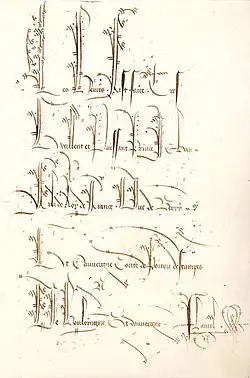 Ces Heures fist faire Tres
Excellent et Puissant Prince Jehan
Filz de Roy de France Duc de Berry
Et Dauvergne Conte de Poitou destampes
De Bouloingne Et dauvergne Flamel